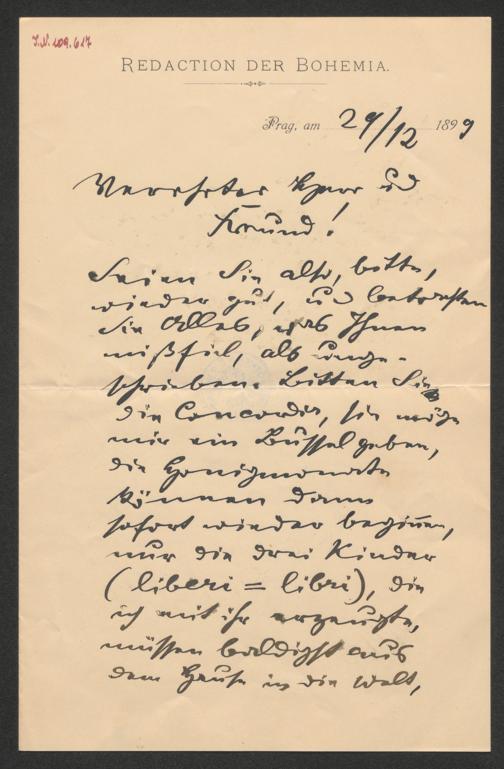 I.N. 109.617
REDACTION DER BOHEMIA.
Prag, am 29/12 1899
Verehrter Herr und
Freund!
Seien Sie also, bitte,
wieder gut, und betrachten
Sie Alles, was Ihnen
mißfiel, als unge-
schrieben. Bitten Sie
die Concordia, sie möge
mir ein Bussel geben,
die Honigmonate
können dann
sofort wieder beginnen,
nur die drei Kinder
(liberi = libri), die
ich mit ihr erzeugte,
müssen baldigst aus
dem Hause in die Welt,